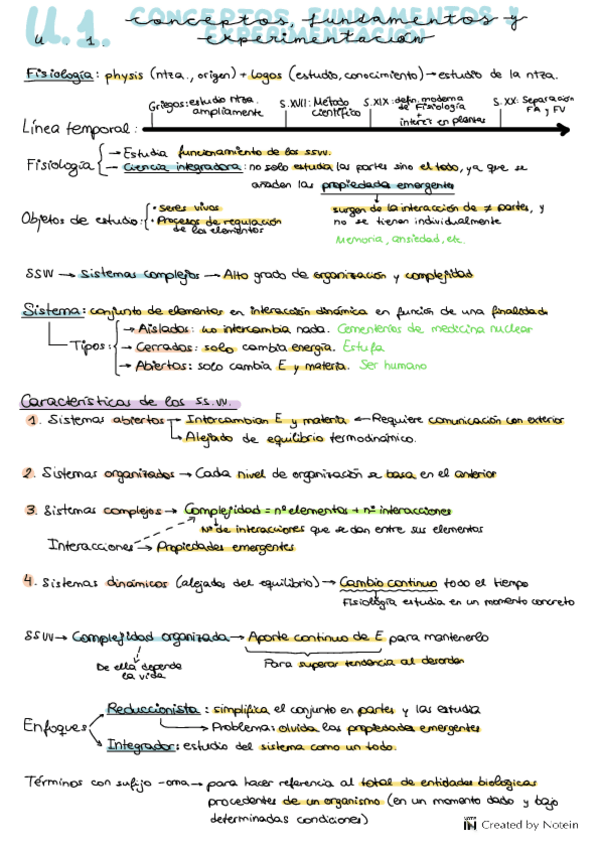 U.1. CONCEPTOS, FUNDAMENTOS Y
U 1. EXPERIMENTACIÓN
Fisiología: physis (ntza., origen) + logos (estudio, conocimiento) → estudio de la ntza.
Griegos: estudio ntza. ampliamente S.XVII: Método científico S.XIX: defn. moderna de Fisiología + interés en plantas S.XX: Separación FA y FV
Línea temporal:
Fisiología → Estudia funcionamiento de los ssvv.
→ Ciencia integradora: no solo estudia las partes sino el todo, ya que se
añaden las propiedades emergentes
Objetos de estudio: · Seres vivos
· Procesos de regulación de los elementos
surgen de la interacción de ≠ partes, y
no se tienen individualmente
Memoria, ansiedad, etc.
SSVV → Sistemas complejos → Alto grado de organización y complejidad
Sistema: conjunto de elementos en interacción dinámica en función de una finalidad
Tipos: → Aislados: no intercambia nada. Cementerios de medicina nuclear
→ Cerrados: solo cambia energía. Estufa
→ Abiertos: solo cambia E y materia. Ser humano
Características de los ss.vv.
1. Sistemas abiertos → Intercambian E y materia ← Requiere comunicación con exterior
→ Alejado de equilibrio termodinámico.
2. Sistemas organizados → Cada nivel de organización se basa en el anterior
3. Sistemas complejos → Complejidad = nº elementos + nº interacciones
Nº de interacciones que se dan entre sus elementos
Interacciones → Propiedades emergentes
4. Sistemas dinámicos (alejados del equilibrio) → Cambio continuo todo el tiempo
Fisiología estudia en un momento concreto
SSVV → Complejidad organizada → Aporte continuo de E para mantenerlo
De ella depende la vida
Para superar tendencia al desorden
Enfoques Reduccionista: simplifica el conjunto en partes y las estudia
→ Problema: olvida las propiedades emergentes
Integrador: estudio del sistema como un todo.
Términos con sufijo -oma → para hacer referencia al total de entidades biológicas
procedentes de un organismo (en un momento dado y bajo
determinadas condiciones)
Created by Notein